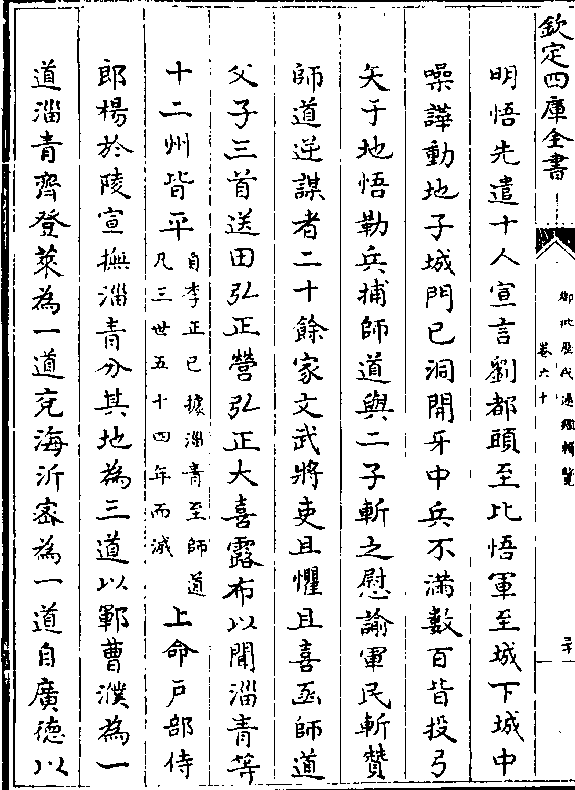 欽定四庫全書
御批歷代通鑑輯覽
卷六十
明悟先遣十人宣言劉都頭至比悟軍至城下城中
噪譁動地子城門已洞開牙中兵不滿數百皆投弓
矢于地悟勒兵捕師道與二子斬之慰諭軍民斬贊
師道逆謀者二十餘家文武將吏且懼且喜函師道
父子三首送田弘正營弘正大喜露布以聞淄青等
十二州皆平自李正已據淄青至師道凡三世五十四年而滅上命戶部侍
郎楊於陵宣撫淄青分其地為三道以鄆曹濮為一
道淄青齊登萊為一道兖海沂密為一道自廣德以